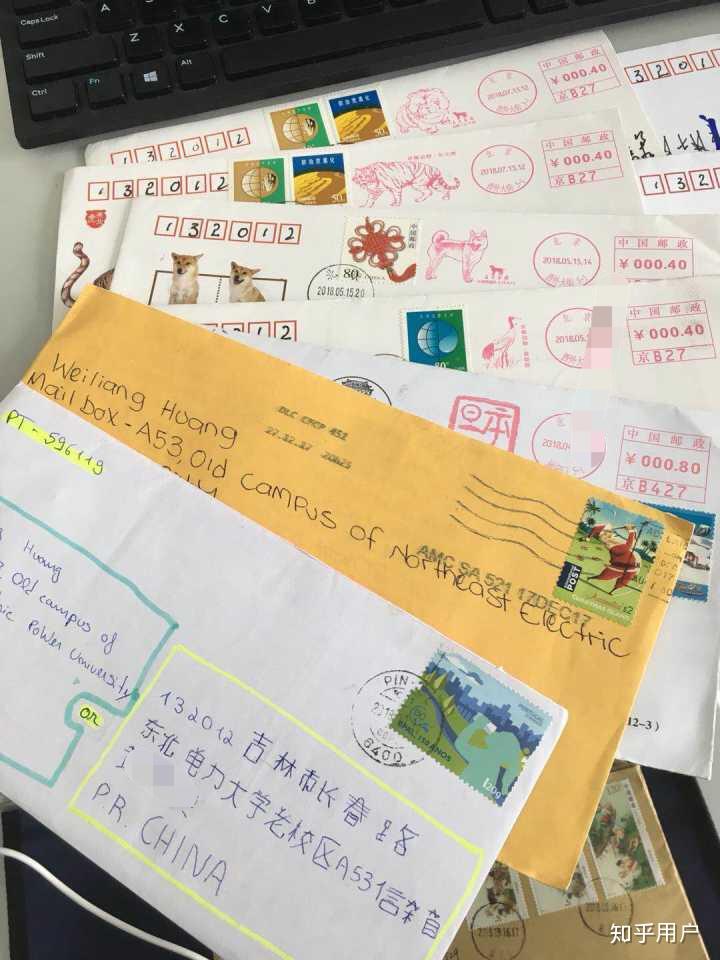 CapsLock
A
Z
X
C
Shift
Ctrl
Fn
Alt
中国邮政
¥000.40
京B27
2018.07.15.12
50
132012
1 3 2 0 1
中国邮政
¥000.40
京B27
2018.07.15.12
50
132012
132
132012
中国邮政
80
2018.05.15.20
2018.05.15.14
中国邮政
¥000.40
京B27
312
80
中国邮政
¥000.40
京B27
日本
中国邮政
¥000.80
京B427
Weiliang Huang
Mail box-A53, Old Campus of Northeast Electric
DLC CSCP 451
27.12.17 20h25
AMC SA 521 17DEC17
POST
CHRISTMAS ISLAND
$2
12-3)
PT-596119
Huang
Old campus of
Power University
or
PIN
6400
BNU, 150 ANOS
I20g
132012 吉林市长春路
东北电力大学老校区A531信箱
P.R. CHINA
知乎用户